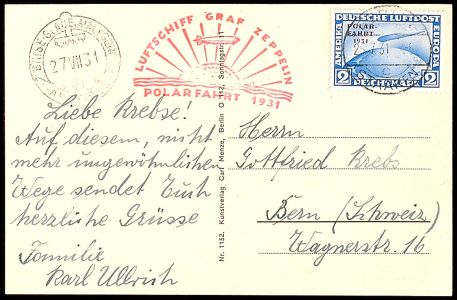 27 VII 31
LUFTSCHIFF GRAF ZEPPELIN
POLARFAHRT 1931
DEUTSCHE LUFTPOST
POLAR-
FAHRT
1931
AMERIKA
EUROPA
2 REICHSMARK 2
Liebe Krebse!
Auf diesem, nicht
mehr ungewöhnlichen
Wege sendet Euch
herzliche Grüsse
Familie
Karl Ullrich
Nr. 1152. Kunstverlag Carl Menze, Berlin O 112, Sonntagstr.
Herrn
Gottfried Krebs
Bern (Schweiz)
Wagnerstr. 16